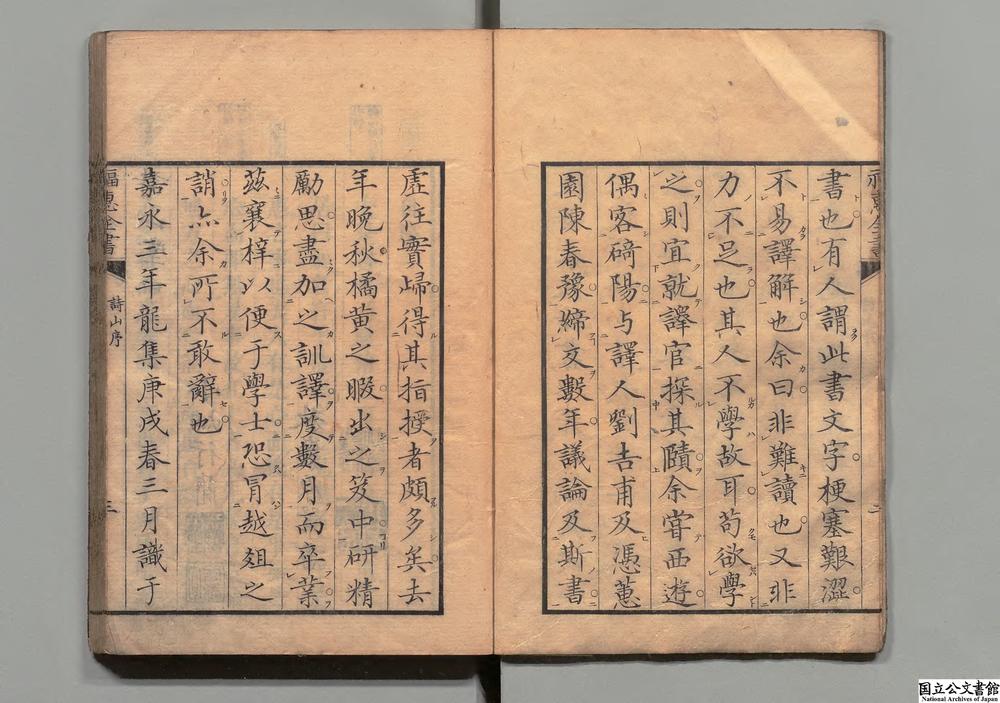 書也有人謂此書文字梗塞艱澀
不易譯解也余曰非難讀也又非
力不足也其人不學故耳苟欲學
之則宜就譯官探其賾余嘗西遊
偶客碕陽与譯人劉吉甫及馮蕙
園陳春豫締文數年議論及斯書
虛往實歸得其指授者頗多矣去
年晚秋橘黃之暇出之笈中研精
勵思盡加之訓譯度數月而卒業
茲襄梓以便于學士恐冒越俎之
誚亦余所不敢辭也
嘉永三年龍集庚戌春三月識于
福惠全書
詩山序
三
国立公文書館
National Archives of Japan